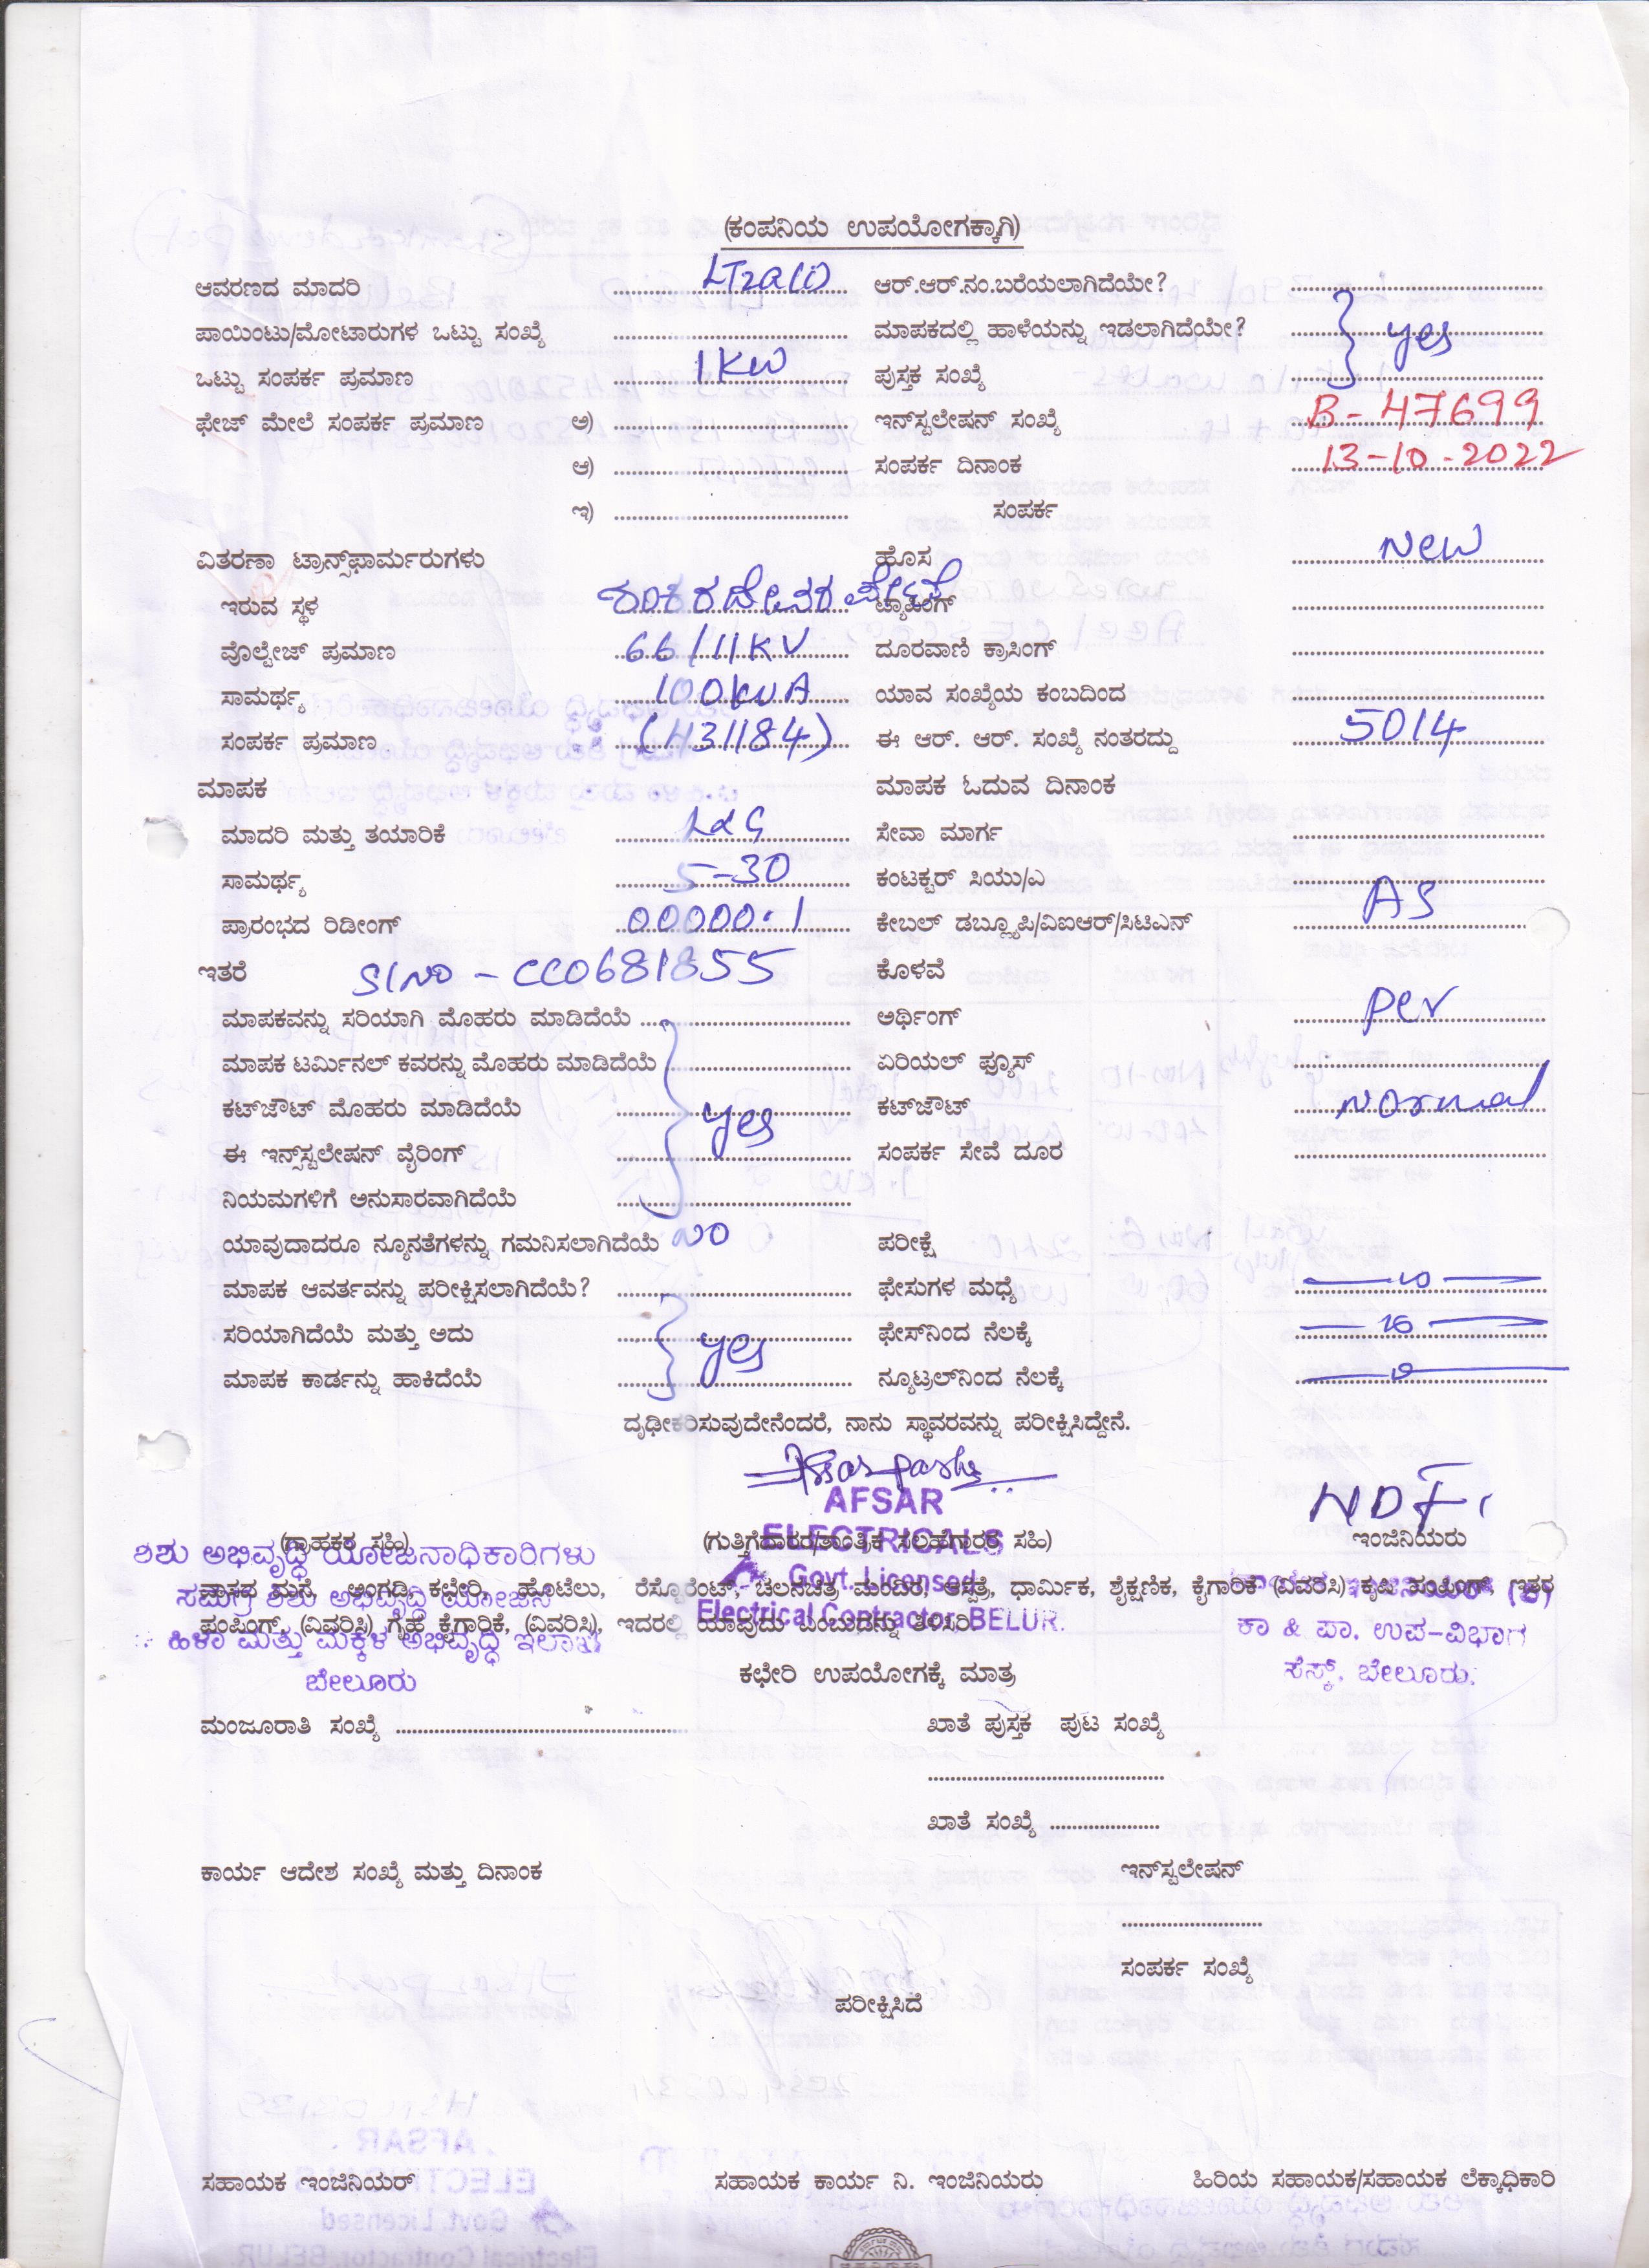 (ಕಂಪನಿಯ ಉಪಯೋಗಕ್ಕಾಗಿ)
ಆವರಣದ ಮಾದರಿ LT2a(i) ಆರ್.ಆರ್.ನಂ.ಬರೆಯಲಾಗಿದೆಯೇ?
ಪಾಯಿಂಟು/ಮೋಟಾರುಗಳ ಒಟ್ಟು ಸಂಖ್ಯೆ ಮಾಪಕದಲ್ಲಿ ಹಾಳೆಯನ್ನು ಇಡಲಾಗಿದೆಯೇ? yes
ಒಟ್ಟು ಸಂಪರ್ಕ ಪ್ರಮಾಣ 1KW ಪುಸ್ತಕ ಸಂಖ್ಯೆ
ಫೇಜ್ ಮೇಲೆ ಸಂಪರ್ಕ ಪ್ರಮಾಣ ಅ) ಇನ್‌ಸ್ಟಲೇಷನ್ ಸಂಖ್ಯೆ B-47699
ಆ) ಸಂಪರ್ಕ ದಿನಾಂಕ 13-10-2022
ಇ) ಸಂಪರ್ಕ
ವಿತರಣಾ ಟ್ರಾನ್ಸ್‌ಫಾರ್ಮರುಗಳು ಹೊಸ New
ಇರುವ ಸ್ಥಳ ಶಂಕರದೇವರ ಪೇಟೆ ಟ್ಯಾಪಿಂಗ್
ವೊಲ್ಟೇಜ್ ಪ್ರಮಾಣ 66/11KV ದೂರವಾಣಿ ಕ್ರಾಸಿಂಗ್
ಸಾಮರ್ಥ್ಯ 100KVA ಯಾವ ಸಂಖ್ಯೆಯ ಕಂಬದಿಂದ
ಸಂಪರ್ಕ ಪ್ರಮಾಣ (431184) ಈ ಆರ್. ಆರ್. ಸಂಖ್ಯೆ ನಂತರದ್ದು 5014
ಮಾಪಕ ಮಾಪಕ ಓದುವ ದಿನಾಂಕ
ಮಾದರಿ ಮತ್ತು ತಯಾರಿಕೆ L&G ಸೇವಾ ಮಾರ್ಗ
ಸಾಮರ್ಥ್ಯ 5-30 ಕಂಟಕ್ಟರ್ ಸಿಯು/ಎ
ಪ್ರಾರಂಭದ ರಿಡೀಂಗ್ 00000.1 ಕೇಬಲ್ ಡಬ್ಲ್ಯೂಪಿ/ವಿಐಆರ್/ಸಿಟಿಎನ್ AS
ಇತರೆ Sl no - CC0681855 ಕೊಳವೆ
ಮಾಪಕವನ್ನು ಸರಿಯಾಗಿ ಮೊಹರು ಮಾಡಿದೆಯೆ ಅರ್ಥಿಂಗ್ per
ಮಾಪಕ ಟರ್ಮಿನಲ್ ಕವರನ್ನು ಮೊಹರು ಮಾಡಿದೆಯೆ ಏರಿಯಲ್ ಫ್ಯೂಸ್
ಕಟ್‌ಜೌಟ್ ಮೊಹರು ಮಾಡಿದೆಯೆ yes ಕಟ್‌ಜೌಟ್ normal
ಈ ಇನ್ಸ್‌ಸ್ಟಲೇಷನ್ ವೈರಿಂಗ್ ಸಂಪರ್ಕ ಸೇವೆ ದೂರ
ನಿಯಮಗಳಿಗೆ ಅನುಸಾರವಾಗಿದೆಯೆ
ಯಾವುದಾದರೂ ನ್ಯೂನತೆಗಳನ್ನು ಗಮನಿಸಲಾಗಿದೆಯೆ NO ಪರೀಕ್ಷೆ
ಮಾಪಕ ಆವರ್ತವನ್ನು ಪರೀಕ್ಷಿಸಲಾಗಿದೆಯೆ? ಫೇಸುಗಳ ಮಧ್ಯೆ
ಸರಿಯಾಗಿದೆಯೆ ಮತ್ತು ಅದು yes ಫೇಸ್‌ನಿಂದ ನೆಲಕ್ಕೆ
ಮಾಪಕ ಕಾರ್ಡನ್ನು ಹಾಕಿದೆಯೆ ನ್ಯೂಟ್ರಲ್‌ನಿಂದ ನೆಲಕ್ಕೆ
ದೃಢೀಕರಿಸುವುದೇನೆಂದರೆ, ನಾನು ಸ್ಥಾವರವನ್ನು ಪರೀಕ್ಷಿಸಿದ್ದೇನೆ.
AFSAR
ELECTRICALS
Govt. Licensed
Electrical Contractor, BELUR.
(ಗ್ರಾಹಕರ ಸಹಿ) (ಗುತ್ತಿಗೆದಾರರ/ತಾಂತ್ರಿಕ ಸಲಹೆಗಾರರ ಸಹಿ) ಇಂಜಿನಿಯರು
ಶಿಶು ಅಭಿವೃದ್ಧಿ ಯೋಜನಾಧಿಕಾರಿಗಳು
ಸಮಗ್ರ ಶಿಶು ಅಭಿವೃದ್ಧಿ ಯೋಜನೆ
ಹಿಳಾ ಮತ್ತು ಮಕ್ಕಳ ಅಭಿವೃದ್ಧಿ ಇಲಾಖೆ
ಬೇಲೂರು
ವಾಸದ ಮನೆ, ಅಂಗಡಿ, ಕಛೇರಿ, ಹೊಟೆಲು, ರೆಸ್ಟೊರೆಂಟ್, ಚಲನಚಿತ್ರ ಮಂದಿರ, ಆಸ್ಪತ್ರೆ, ಧಾರ್ಮಿಕ, ಶೈಕ್ಷಣಿಕ, ಕೈಗಾರಿಕೆ (ವಿವರಿಸಿ) ಕೃಷಿ ಪಂಪಿಂಗ್, ಇತರ
ಪಂಪಿಂಗ್, (ವಿವರಿಸಿ) ಗೃಹ ಕೈಗಾರಿಕೆ, (ವಿವರಿಸಿ), ಇದರಲ್ಲಿ ಯಾವುದು ಎಂಬುದನ್ನು ತಿಳಿಸಿರಿ.
ಕಾ & ಪಾ. ಉಪ-ವಿಭಾಗ
ಸೆಸ್ಕ್, ಬೇಲೂರು.
ಕಛೇರಿ ಉಪಯೋಗಕ್ಕೆ ಮಾತ್ರ
ಮಂಜೂರಾತಿ ಸಂಖ್ಯೆ ಖಾತೆ ಪುಸ್ತಕ ಪುಟ ಸಂಖ್ಯೆ
ಖಾತೆ ಸಂಖ್ಯೆ
ಕಾರ್ಯ ಆದೇಶ ಸಂಖ್ಯೆ ಮತ್ತು ದಿನಾಂಕ ಇನ್‌ಸ್ಟಲೇಷನ್
ಸಂಪರ್ಕ ಸಂಖ್ಯೆ
ಪರೀಕ್ಷಿಸಿದೆ
ಸಹಾಯಕ ಇಂಜಿನಿಯರ್ ಸಹಾಯಕ ಕಾರ್ಯ ನಿ. ಇಂಜಿನಿಯರು ಹಿರಿಯ ಸಹಾಯಕ/ಸಹಾಯಕ ಲೆಕ್ಕಾಧಿಕಾರಿ